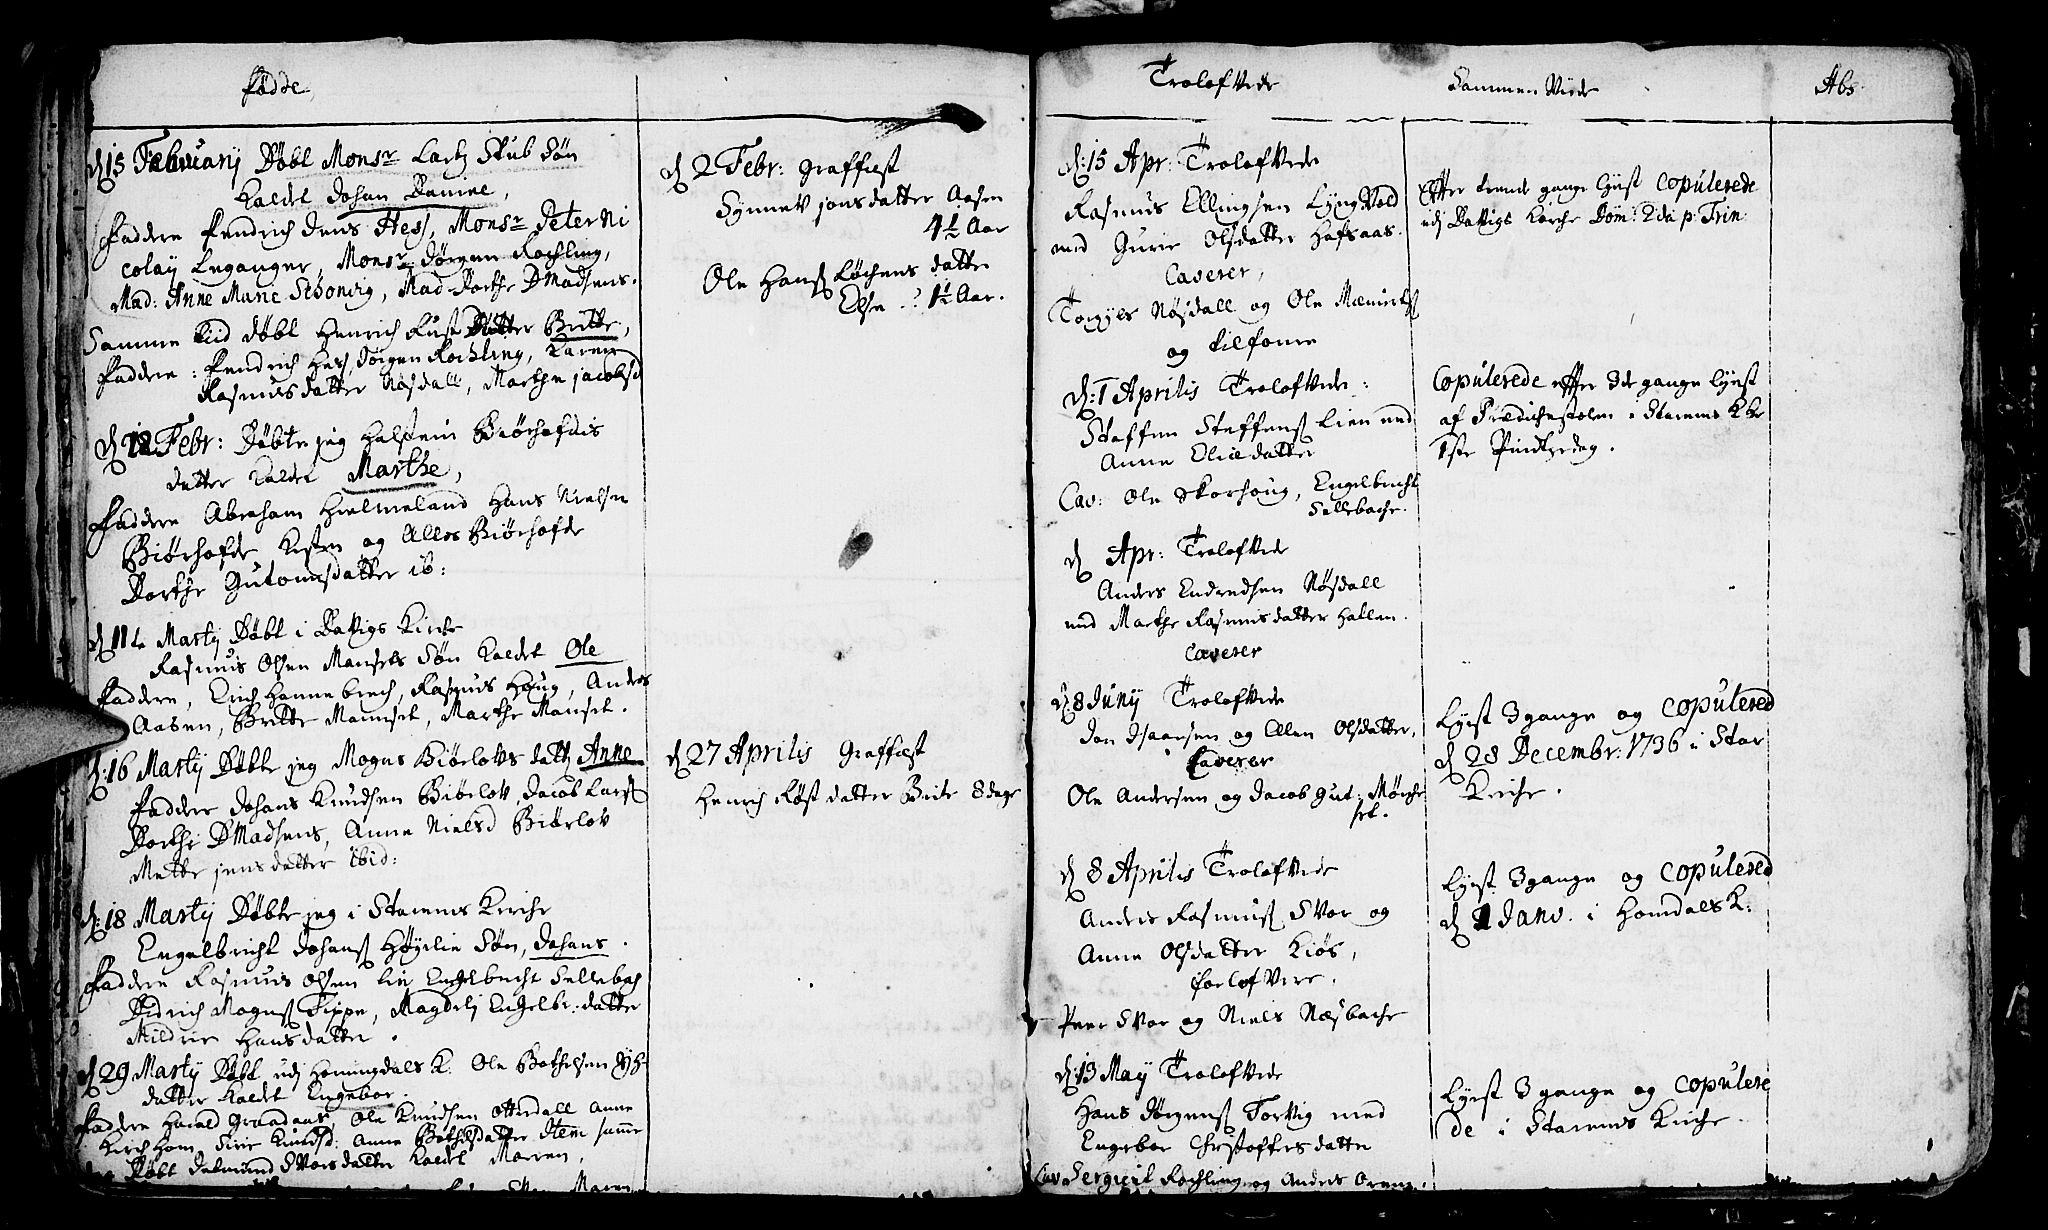 Fødde
d 15 Februarij Døbt Monsr Lartz Skub Søn
kaldet Johan Daniel,
Faddere Fendrich Jens Hess, Monsr Peter Ni
colaij Leganger, Monsr Jørgen Rochling,
Mad: Anne Marie Schoning, Mad Dorthe DMadsens.
Samme tiid døbt Henrich Rust Datter Britte,
Faddere: Fendrich Hess, Jørgen Rochling, Karen
Rasmusdatter Nøsdall, Marthe Jacobsd
d 12 Febr: Døbte jeg Halstein Biørhofdis
datter kaldet Marthe,
Faddere Abraham Hielmeland Hans Nielsen
Biørhofde Kisten og Allos Biørhofde
Dorthe Gutormsdatter ib:
d 11te Martij Døbt i Davigs Kirke
Rasmus Olsen Mansets Søn kaldet Ole
Faddere, Erich Hannebrech, Rasmus Houg, Anders
Aasen, Britte Manset, Marthe Manset.
d: 16 Martij Døbte jeg Mogns Biørlovs datt Anne
Faddere Johans Knudsen Biørlov, Jacob Larss
Dorthe DMadsens, Anne Nielsd Biørlov
Mette jensdatter ibid:
d: 18 Martij Døbte jeg i Starens Kirche
Engelbricht Johanss Høyelin Søn, Johans.
Faddere Rasmus Olsen Lie Engelbrecht Sellebach
Didrich Mognss Fippe, Magdeli Engelbr: datter
Mildrie Hansdatter.
d 29 Martij Døbt udj Homingdals K. Ole Bothelsen
datter kaldet Engebor.
Faddere Harald Graadaas, Ole Knudsen Otterdall Anne
Kirchhom Sirie Knudsd: Anne Bothelsdatter Item samme
Døbt Svorsdatter kaldet Marren,
d 2 Febr: Graffæst
Synnev jonsdatter Aasen
4½ Aar
Ole Hanss Løchens datter
Else : 1½ Aar.
d 27 Aprilis Graffæst
Henrich Røst datter Brite 8 dage
Trolofvede
d: 15 Apr: Trolofvede
Rasmus Ellingsen LyngVold
med Gurie Olsdatter Hafsaas.
Caverer,
Torgyls Nøsdall og Ole
og
d: 1 Aprilis Trolofvede:
Steffen Steffenss Lien med
Anne Olisdatter
Cav: Ole Skorhoug, Engelbricht
Sellebache.
d Apr: Trolofvede
Anders Endredsen Nøsdall
med Marthe Rasmusdatter Hallen.
Caverer
d: 8 Junij Trolofvede
Jon Isaacsen og Ellen Olsdatter,
Caverer
Ole Andersen og Jacob Gut: Mørche
set.
d 8 Aprilis Trolofvede
Anders Rasmuss SVor og
Anne Olsdatter Kiøs,
forlofvere.
Peer SVor og Niels Næsbache
d: 13 May Trolofvede
Hans Jørgenss Torvig med
Engebor Christoffersdatter
Cav Sergiant Rochling og Anders
Sammen Viede
Effter trende gange lyst Copulerede
udj Davigs Kirche Dom: 2da p: Trin:
Copulerede effter 3de gange lyst
af Prædichestolen i Starens Kke
1ste Pindtzedag.
Lyst 3 gange og Copulered
d 28 Decembr: 1736 i Star
Kirche.
Lyst 3 gange og Copulered
d 1 Janv. i Homdals K:
Lyst 3 gange og Copulere
de i Starens Kirche.
Abs